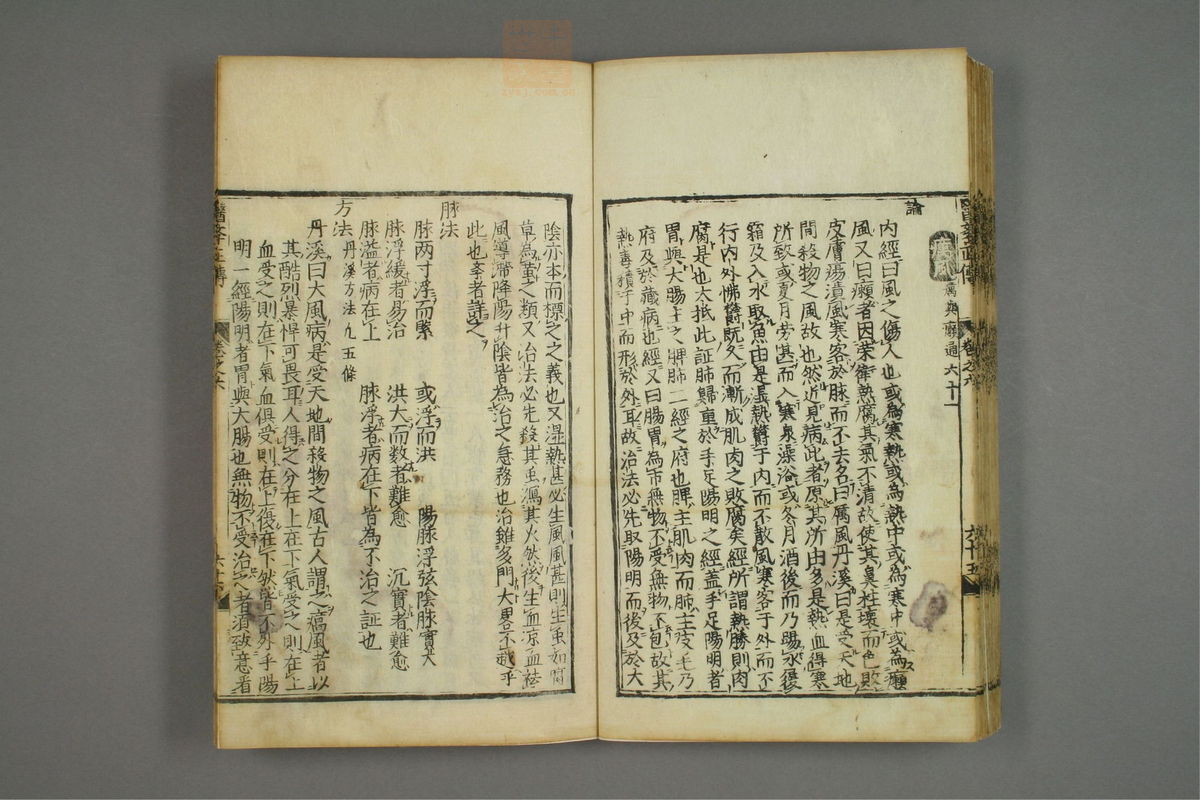 論
癘風 癘與癩通 六十一
內經曰風之傷人也或為寒熱或為熱中或為寒中或為癘
風又曰癩者因榮衛熱腐其氣不清故使其鼻柱壞而色敗
皮膚瘍潰風寒客於脉而不去名曰厲風丹溪曰是受天地
間殺物之風故也然近見病此者原其所由多是熱血得寒
所致或夏月勞甚而入寒泉澡浴或冬月酒後而乃踢水履
霜及入水取魚由是濕熱欝于內而不散風寒客于外而不
行內外怫欝既久而漸成肌肉之敗腐矣經所謂熱勝則肉
腐是也大抵此証肺歸重於手足陽明之經盖手足陽明者
胃與大腸主之脾肺二經之府也脾主肌肉而肺主皮毛乃
府及於藏病也經又曰腸胃為市無物不受無物不包故其
熱毒積于中而形於外耳故治法必先取陽明而後及於大
陰亦本而標之之義也又濕熱甚必生風風甚則生虫如腐
草為蛍之類又治法必先殺其虫瀉其火然後生血凉血祛
風導滯降陽升陰皆為治之急務也治雖多門大畧不越乎
此也學者詳之
脉法
脉两寸浮而緊 或浮而洪 陽脉浮弦陰脉實大
脉浮緩者易治 洪大而数者難愈 沉實者難愈
脉溢者病在上 脉浮者病在下皆為不治之証也
方法 丹溪方法凡五條
丹溪曰大風病是受天地間殺物之風古人謂之癘風者以
其酷烈暴悍可畏耳人得之分在上在下氣受之則在上
血受之則在下氣血俱受則在上復在下然皆不外手陽
明一經陽明者胃與大腸也無物不受治之者須致意看
醫學正傳
卷之六
六十五